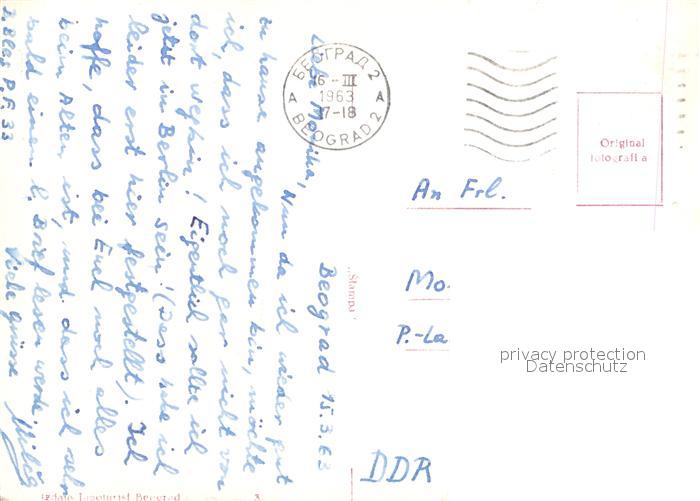 Beograd 15.3.63
Nun da ich wieder gut
zu hause angekommen bin, möchte
ich, dass ich noch gar nicht von
dort weghin! Eigentlich sollte ich
jetzt in Berlin sein! (Dess habe ich
leider erst hier festgestellt). Ich
hoffe, dass bei Euch noch alles
beim Alten ist, und dass ich sehr
bald einen l. Brief lesen werde.
Viele Grüsse
P.F. 33
БЕОГРАД 2
16-III
1963
17-18
A A
BEOGRAD 2
Original
fotografija
An Frl.
Mo.
P.-La
DDR
"Stampa"
privacy protection
Datenschutz
Izdaje Turist Beograd